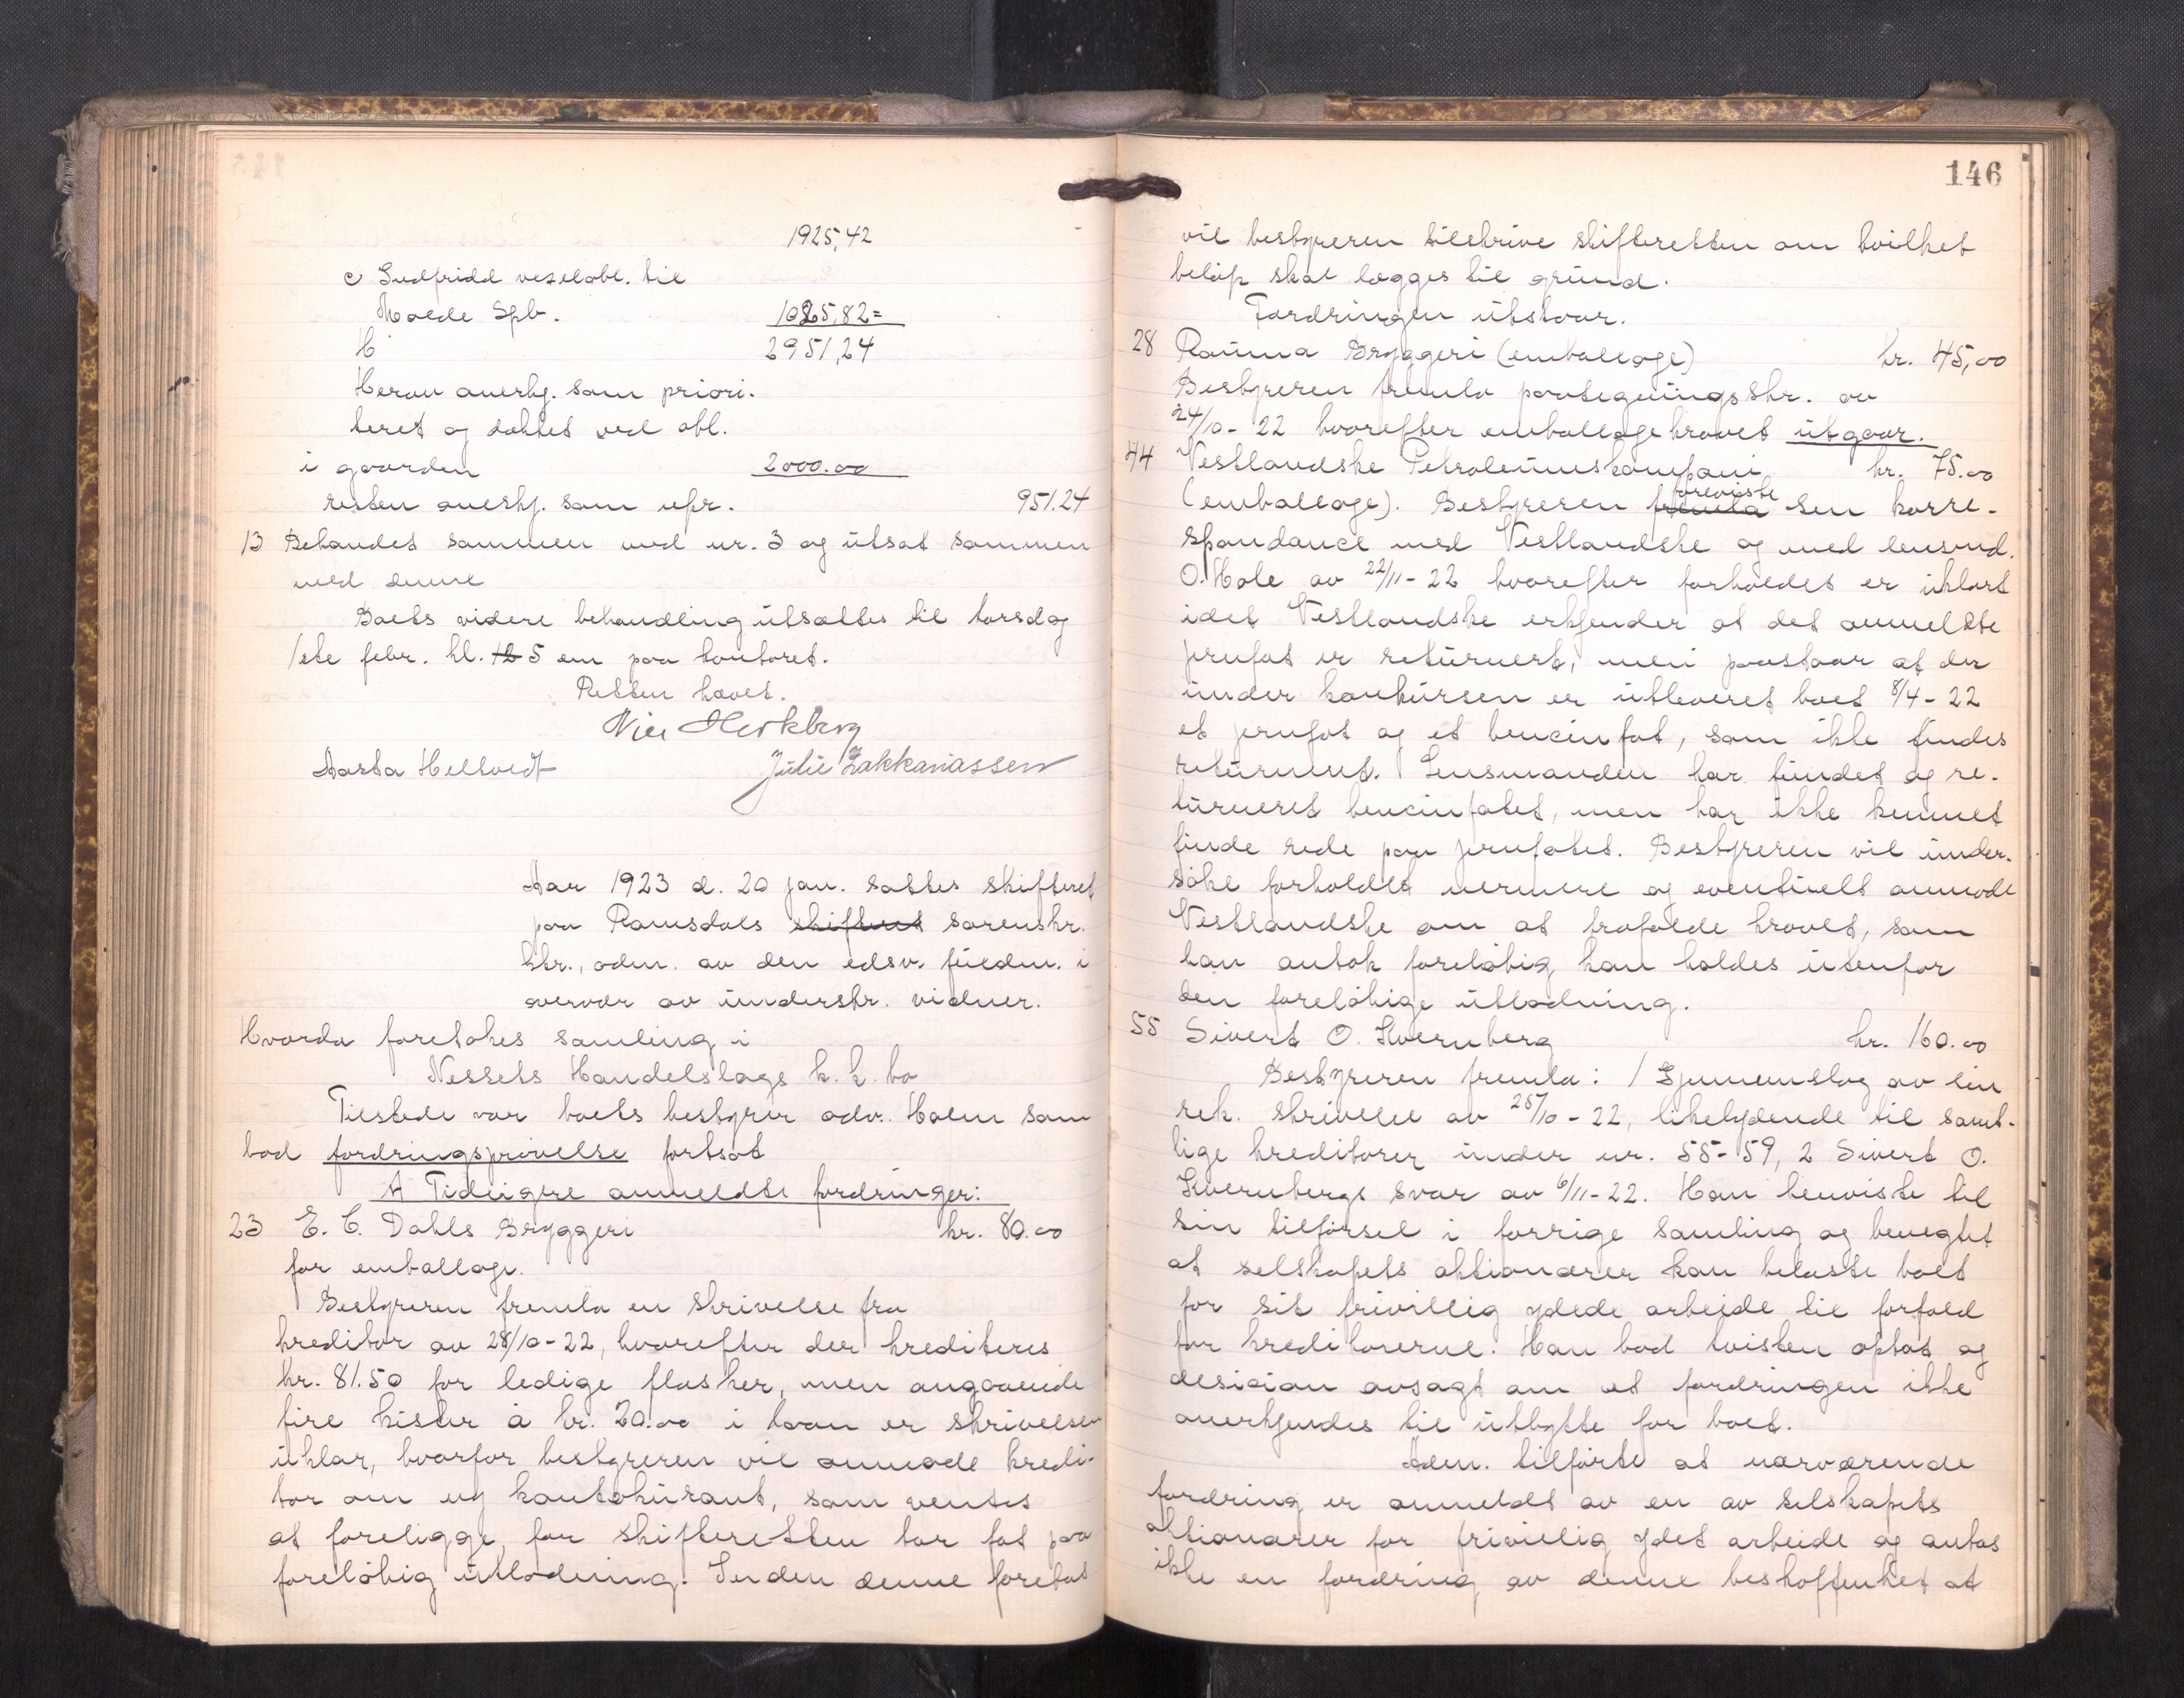 1925,42
c Indfridd vexelobl. til
Molde Spb. 1025,82=
2951,24
Herav anerkj. som priori-
teret og dækket ved obl.
i gaarden 2000.00
resten anerkj. som upr. 951.24
13 Behandlet sammen med nr. 3 og utsat sammen
med denne
Boets videre behandling utsættes til torsdag
1ste febr. kl. 12 5 em paa kontoret.
Retten hævet.
Aasta Hellvedt Julie Zakkariassen
Aar 1923 d. 20 jan. sattes skifteret
paa Romsdals skifteret sorenskr.
ktr., adm. av den edsv. fuldm. i
overvær av underskr. vidner.
Hvorda foretokes samling i
Nessets Handelslags k.k. bo
Tilstede var boets bestyrer adv. Holm som
bad fordringsprøvelse fortsat
A Tidligere anmeldte fordringer:
23 E. C. Dahls Bryggeri kr. 80.00
for emballage.
Bestyreren fremla en skrivelse fra
kreditor av 28/10-22, hvorefter der krediteres
kr. 81.50 for ledige flasker, men angaaende
fire kister à kr. 20.00 i tvan er skrivelsen
uklar, hvorfor bestyreren vil anmode kredi-
tor om ny kontokurant, som ventes
at foreligge før skifteretten tar fat paa
foreløbig utlodning. Inden denne foretas
146
vil bestyreren tilskrive skifteretten om hvilket
beløp skal lægges til grund.
Fordringen utstaar.
28 Rauma Bryggeri (emballage) kr. 45,00
Bestyreren fremla paategningsskr. av
24/10-22 hvorefter emballagekravet utgaar.
44 Vestlandske Petroleumskompani kr. 75.00
foreviste
(emballage). Bestyreren fremla sin korre-
spondance med Vestlandske og med lensmd.
O. Hole av 22/11-22 hvorefter forholdet er uklart
idet Vestlandske erkjender at det anmeldte
jernfat er returnert, men paastaar at der
under konkursen er utleveret boet 8/4-22
et jernfat og et bencinfat, som ikke findes
returneret. Lensmanden har fundet og re-
turneret bencinfatet, men har ikke kunnet
finde rede paa jernfatet. Bestyreren vil under-
søke forholdet nærmere og eventuelt anmode
Vestlandske om at frafalde kravet, som
han antok foreløbig kan holdes utenfor
den foreløbige utlodning.
55 Sivert O. Kvernberg kr. 160.00
Bestyreren fremla: 1 Gjennemslag av sin
rek. skrivelse av 25/10-22, likelydende til samt-
lige kreditorer under nr. 55-59, 2 Sivert O.
Kvernbergs svar av 6/11-22. Han henviste til
sin tilførsel i forrige samling og benegtet
at selskapets aktionærer kan belaste boet
for sit frivillig ydede arbeide til forfald
for kreditorerne. Han bad tvisten optat og
desision avsagt om at fordringen ikke
anerkjendes til utbytte for boet.
Adm. tilførte at nærværende
fordring er anmeldt av en av selskapets
aktionærer for frivillig ydet arbeide og antas
ikke en fordring av denne beskaffenhet at